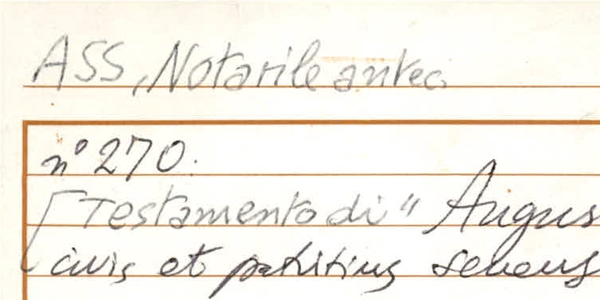 ASS, Notarile antec.
n° 270.
[Testamento di "Augus
civis et patritius senens